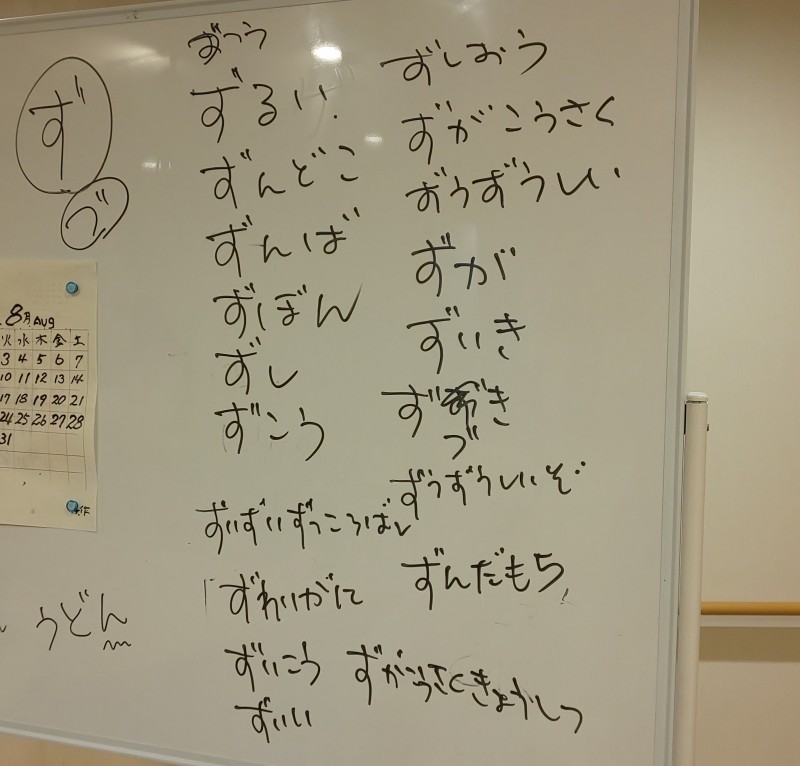 ず
づ
ずつう
ずるい
ずんどこ
ずんば
ずぼん
ずし
ずこう
ずいずいずっころばし
ずわいがに
ずいこう
ずいい
ずしおう
ずがこうさく
ずうずうしい
ずが
ずいき
ず づき
ずうずうしいぞ
ずんだもち
ずがこうさくきょうしつ
うどん
8月 Aug
火 水 木 金 土
3 4 5 6 7
10 11 12 13 14
17 18 19 20 21
24 25 26 27 28
31